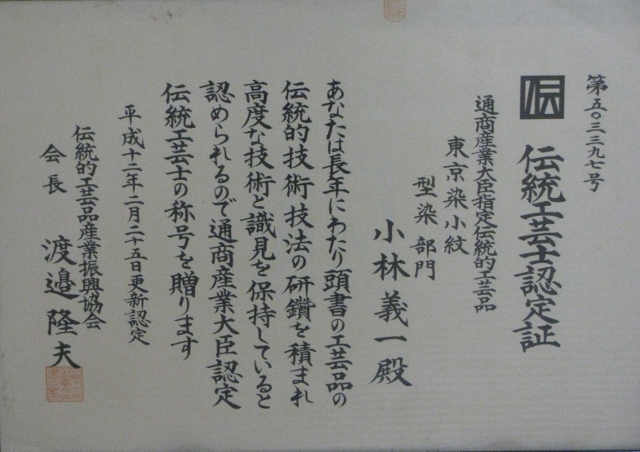 第五〇三三九七号
伝
伝統工芸士認定証
通商産業大臣指定伝統的工芸品
東京染小紋
型染部門
小林義一殿
あなたは長年にわたり頭書の工芸品の
伝統的技術技法の研鑽を積まれ
高度な技術と識見を保持していると
認められるので通商産業大臣認定
伝統工芸士の称号を贈ります
平成十二年二月二十五日更新認定
伝統的工芸品産業振興協会
会長 渡邉隆夫